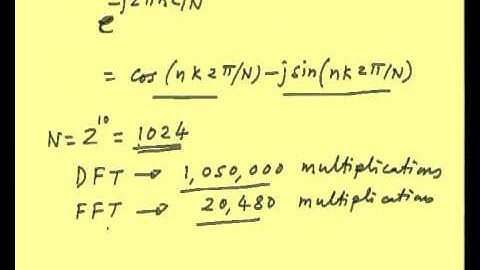 e^-j2πnk/N
= cos (nk2π/N) - j sin(nk2π/N)
N = 2^10 = 1024
DFT → 1,050,000 multiplications
FFT → 20,480 multiplications